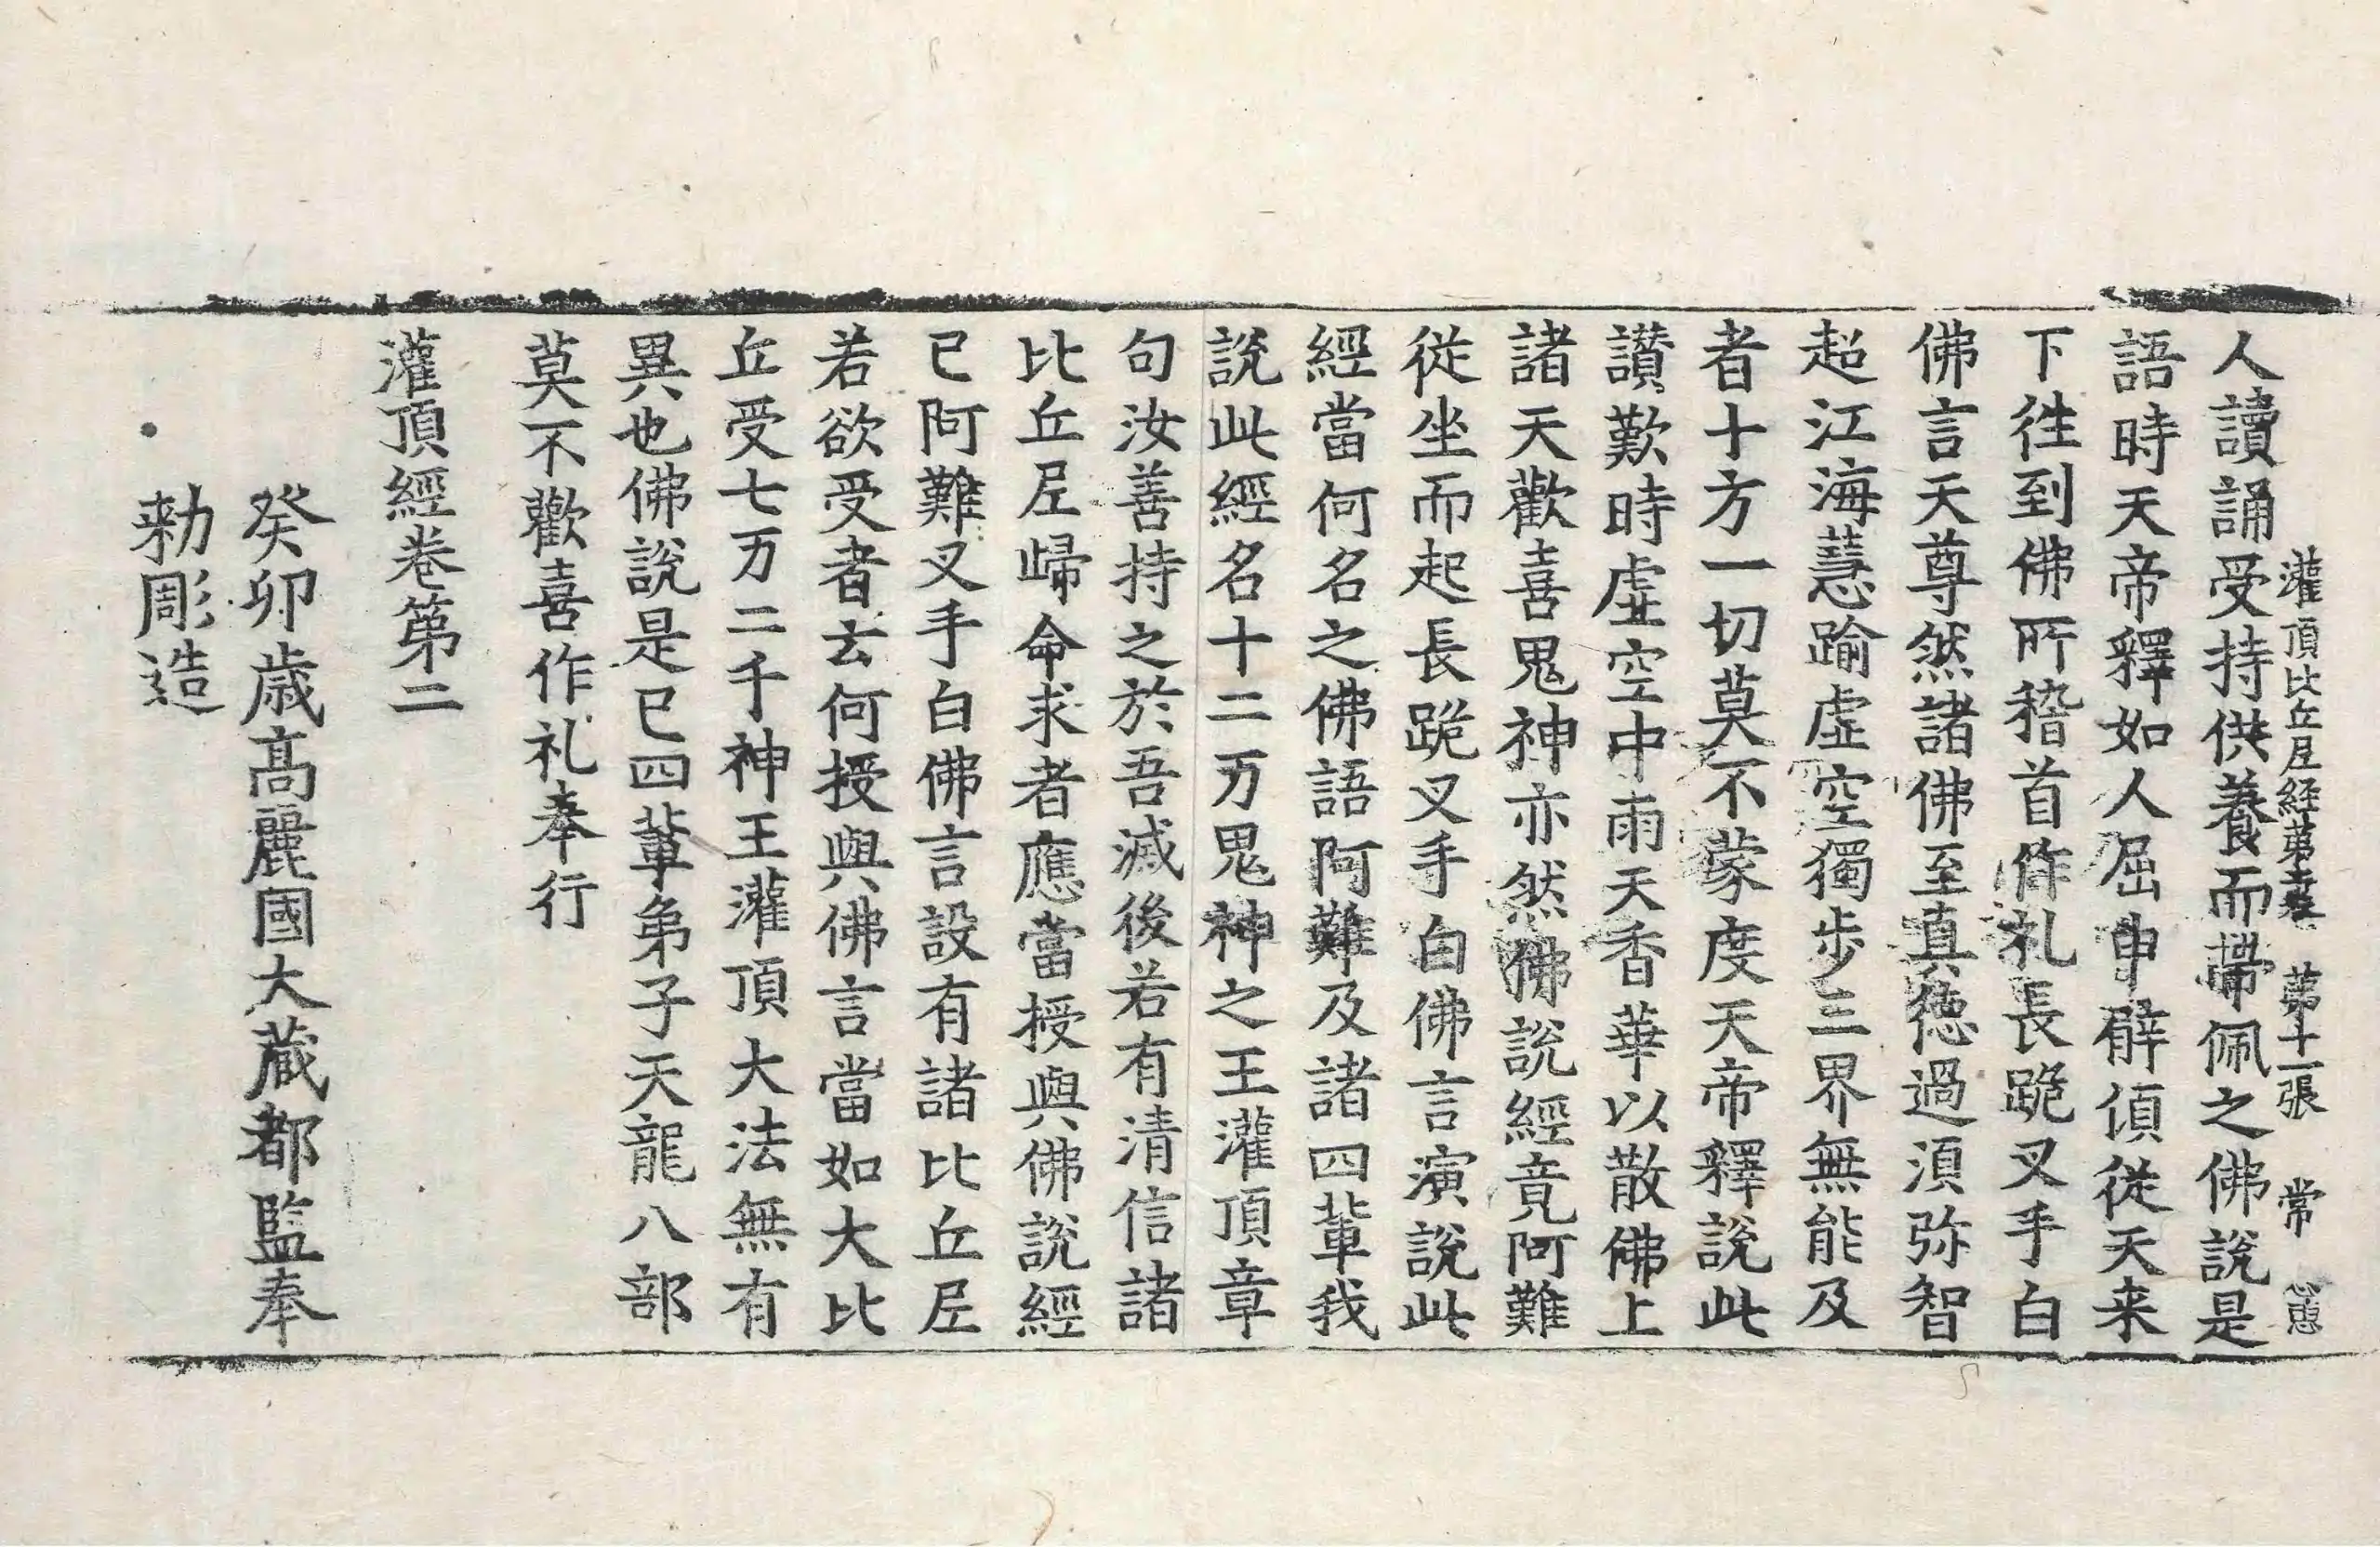 灌頂比丘尼経第二卷 第十一張 常
人讀誦受持供養而帶佩之佛說是
語時天帝釋如人屈申臂傾從天来
下徃到佛所稽首作礼長跪叉手白
佛言天尊然諸佛至真德過湏弥智
超江海慧踰虛空獨步三界無能及
者十方一切莫不蒙度天帝釋說此
讃歎時虛空中雨天香華以散佛上
諸天歡喜鬼神亦然佛說經竟阿難
從坐而起長跪叉手白佛言演說此
經當何名之佛語阿難及諸四軰我
說此經名十二万鬼神之王灌頂章
句汝善持之於吾滅後若有清信諸
比丘尼歸命求者應當授與佛說經
已阿難叉手白佛言設有諸比丘尼
若欲受者云何授與佛言當如大比
丘受七万二千神王灌頂大法無有
異也佛說是已四軰弟子天龍八部
莫不歡喜作礼奉行
灌頂經卷第二
癸卯歲髙麗國大藏都監奉
勑彫造